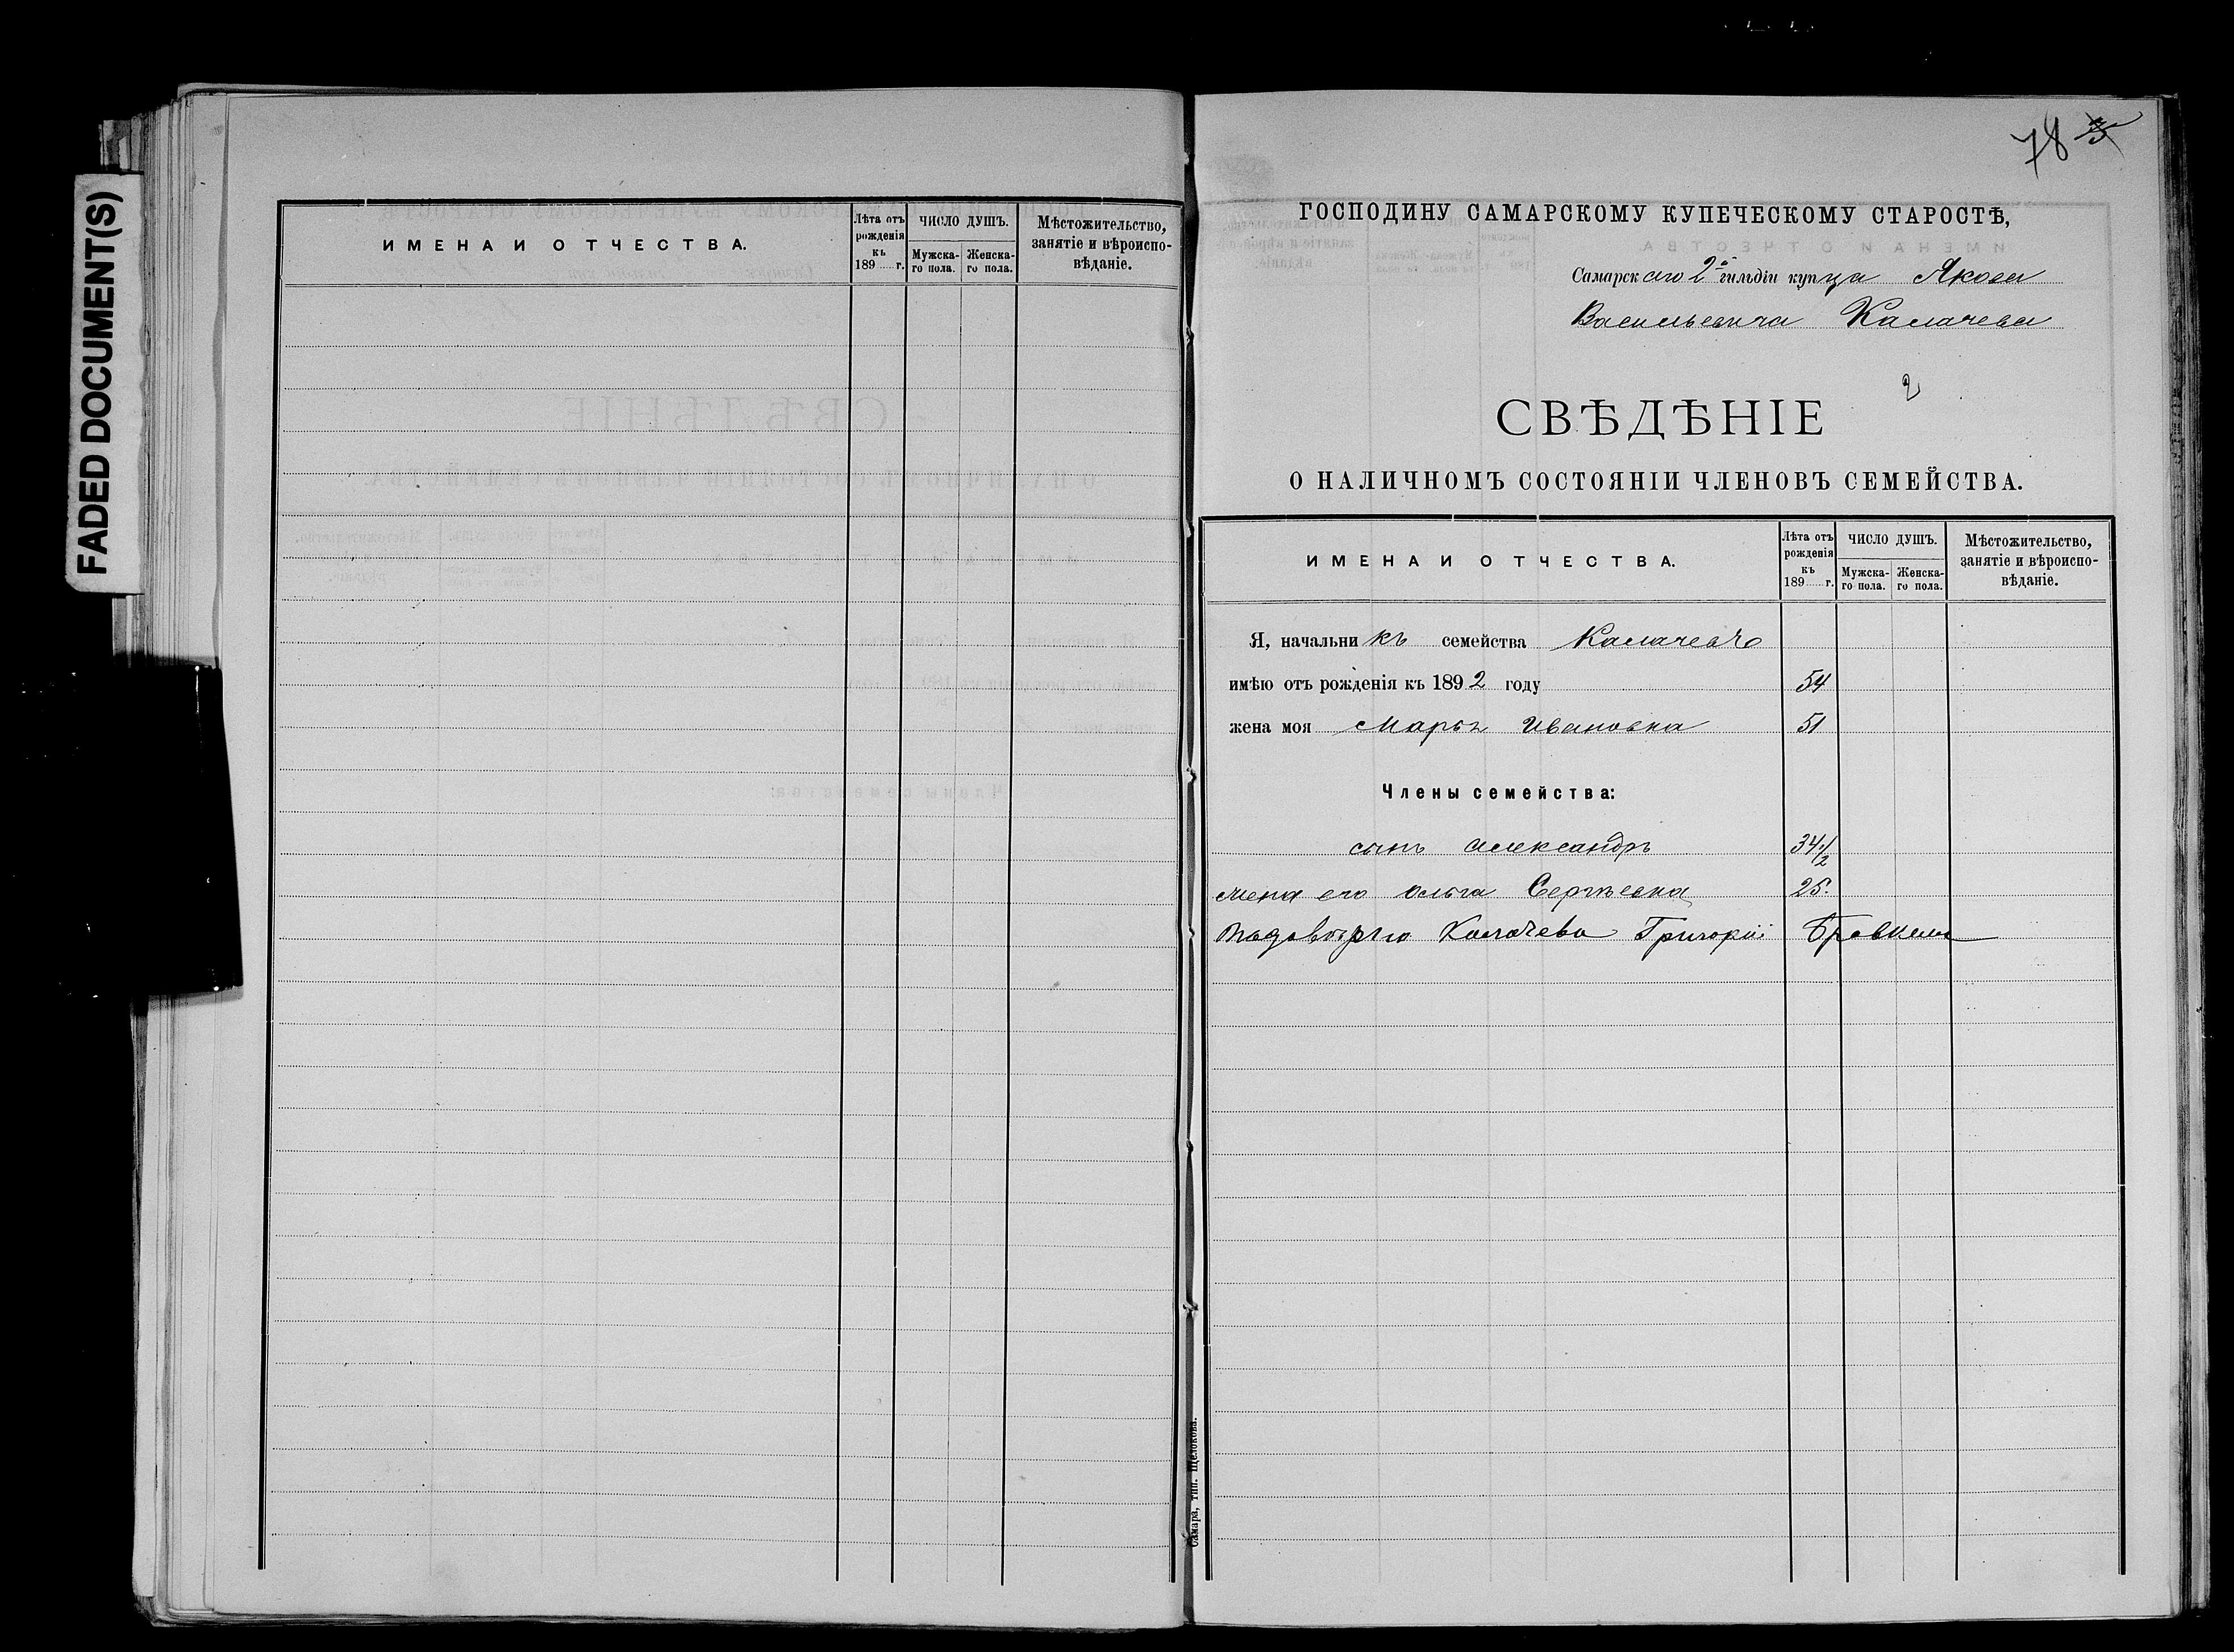 FADED DOCUMENT(S)
ИМЕНА И ОТЧЕСТВА.
Лѣта отъ рожденія къ 189 г.
ЧИСЛО ДУШЪ.
Мужска-го пола.
Женска-го пола.
Мѣстожительство, занятіе и вѣроиспо-вѣданіе.
78
ГОСПОДИНУ САМАРСКОМУ КУПЕЧЕСКОМУ СТАРОСТѢ,
Самарскаго 2й гильдіи купца Якова
Васильевича Калачева
2
СВѢДѢНІЕ
О НАЛИЧНОМЪ СОСТОЯНІИ ЧЛЕНОВЪ СЕМЕЙСТВА.
ИМЕНА И ОТЧЕСТВА.
Лѣта отъ рожденія къ 189 г.
ЧИСЛО ДУШЪ.
Мужска-го пола.
Женска-го пола.
Мѣстожительство, занятіе и вѣроиспо-вѣданіе.
Я, начальникъ семейства Калачевъ
имѣю отъ рожденія къ 1892 году 54
жена моя Марья Ивановна 51
Члены семейства:
сынъ Александръ 34 1/2
жена его Ольга Сергѣевна 25.
Калачева Григорій
Самара, тип. Щелокова.